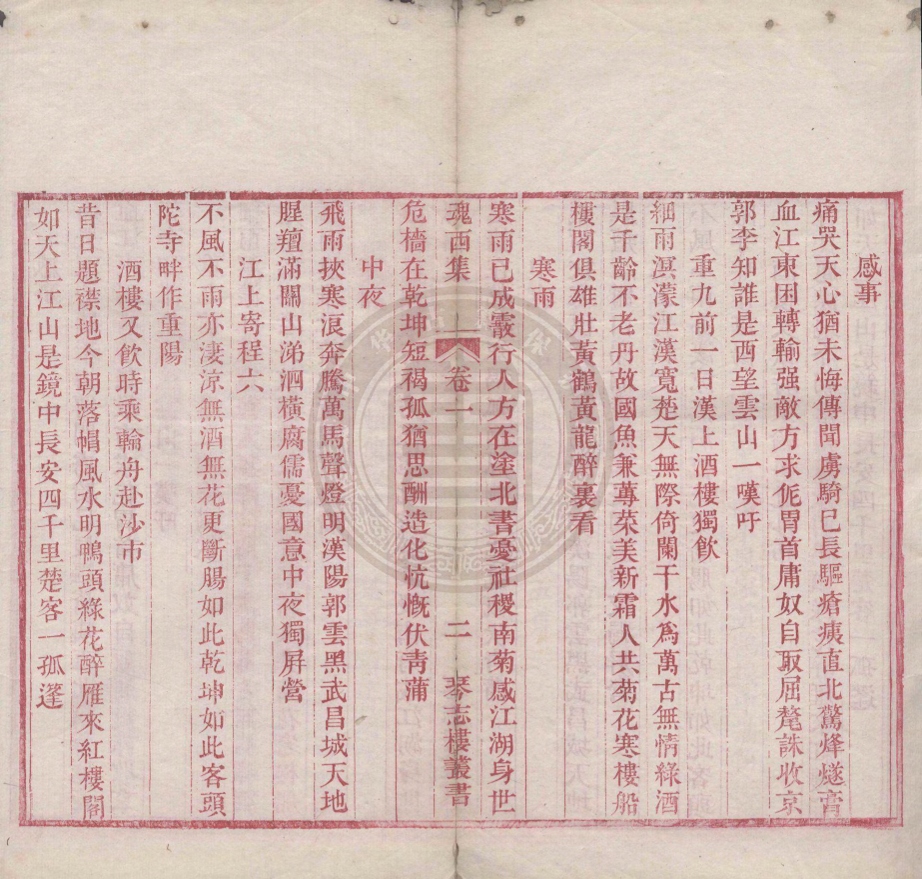 感事
痛哭天心猶未悔傳聞虜騎已長驅瘡痍直北驚烽燧膏
血江東困轉輸强敵方求侂胄首庸奴自取屈氂誅收京
郭李知誰是西望雲山一嘆吁
重九前一日漢上酒樓獨飲
細雨溟濛江漢寬楚天無際倚闌干水爲萬古無情綠酒
是千齡不老丹故國魚兼蓴菜美新霜人共菊花寒樓船
樓閣俱雄壯黃鶴黃龍醉裏看
寒雨
寒雨已成霰行人方在塗北書憂社稷南菊感江湖身世
魂西集 卷一 二 琴志樓叢書
危檣在乾坤短褐孤猶思酬造化忼慨伏靑蒲
中夜
飛雨挾寒浪奔騰萬馬聲燈明漢陽郭雲黑武昌城天地
腥羶滿關山涕泗橫腐儒憂國意中夜獨屏營
江上寄程六
不風不雨亦淒涼無酒無花更斷腸如此乾坤如此客頭
陀寺畔作重陽
酒樓又飲時乘輪舟赴沙市
昔日題襟地今朝落帽風水明鴨頭綠花醉雁來紅樓閣
如天上江山是鏡中長安四千里楚客一孤篷